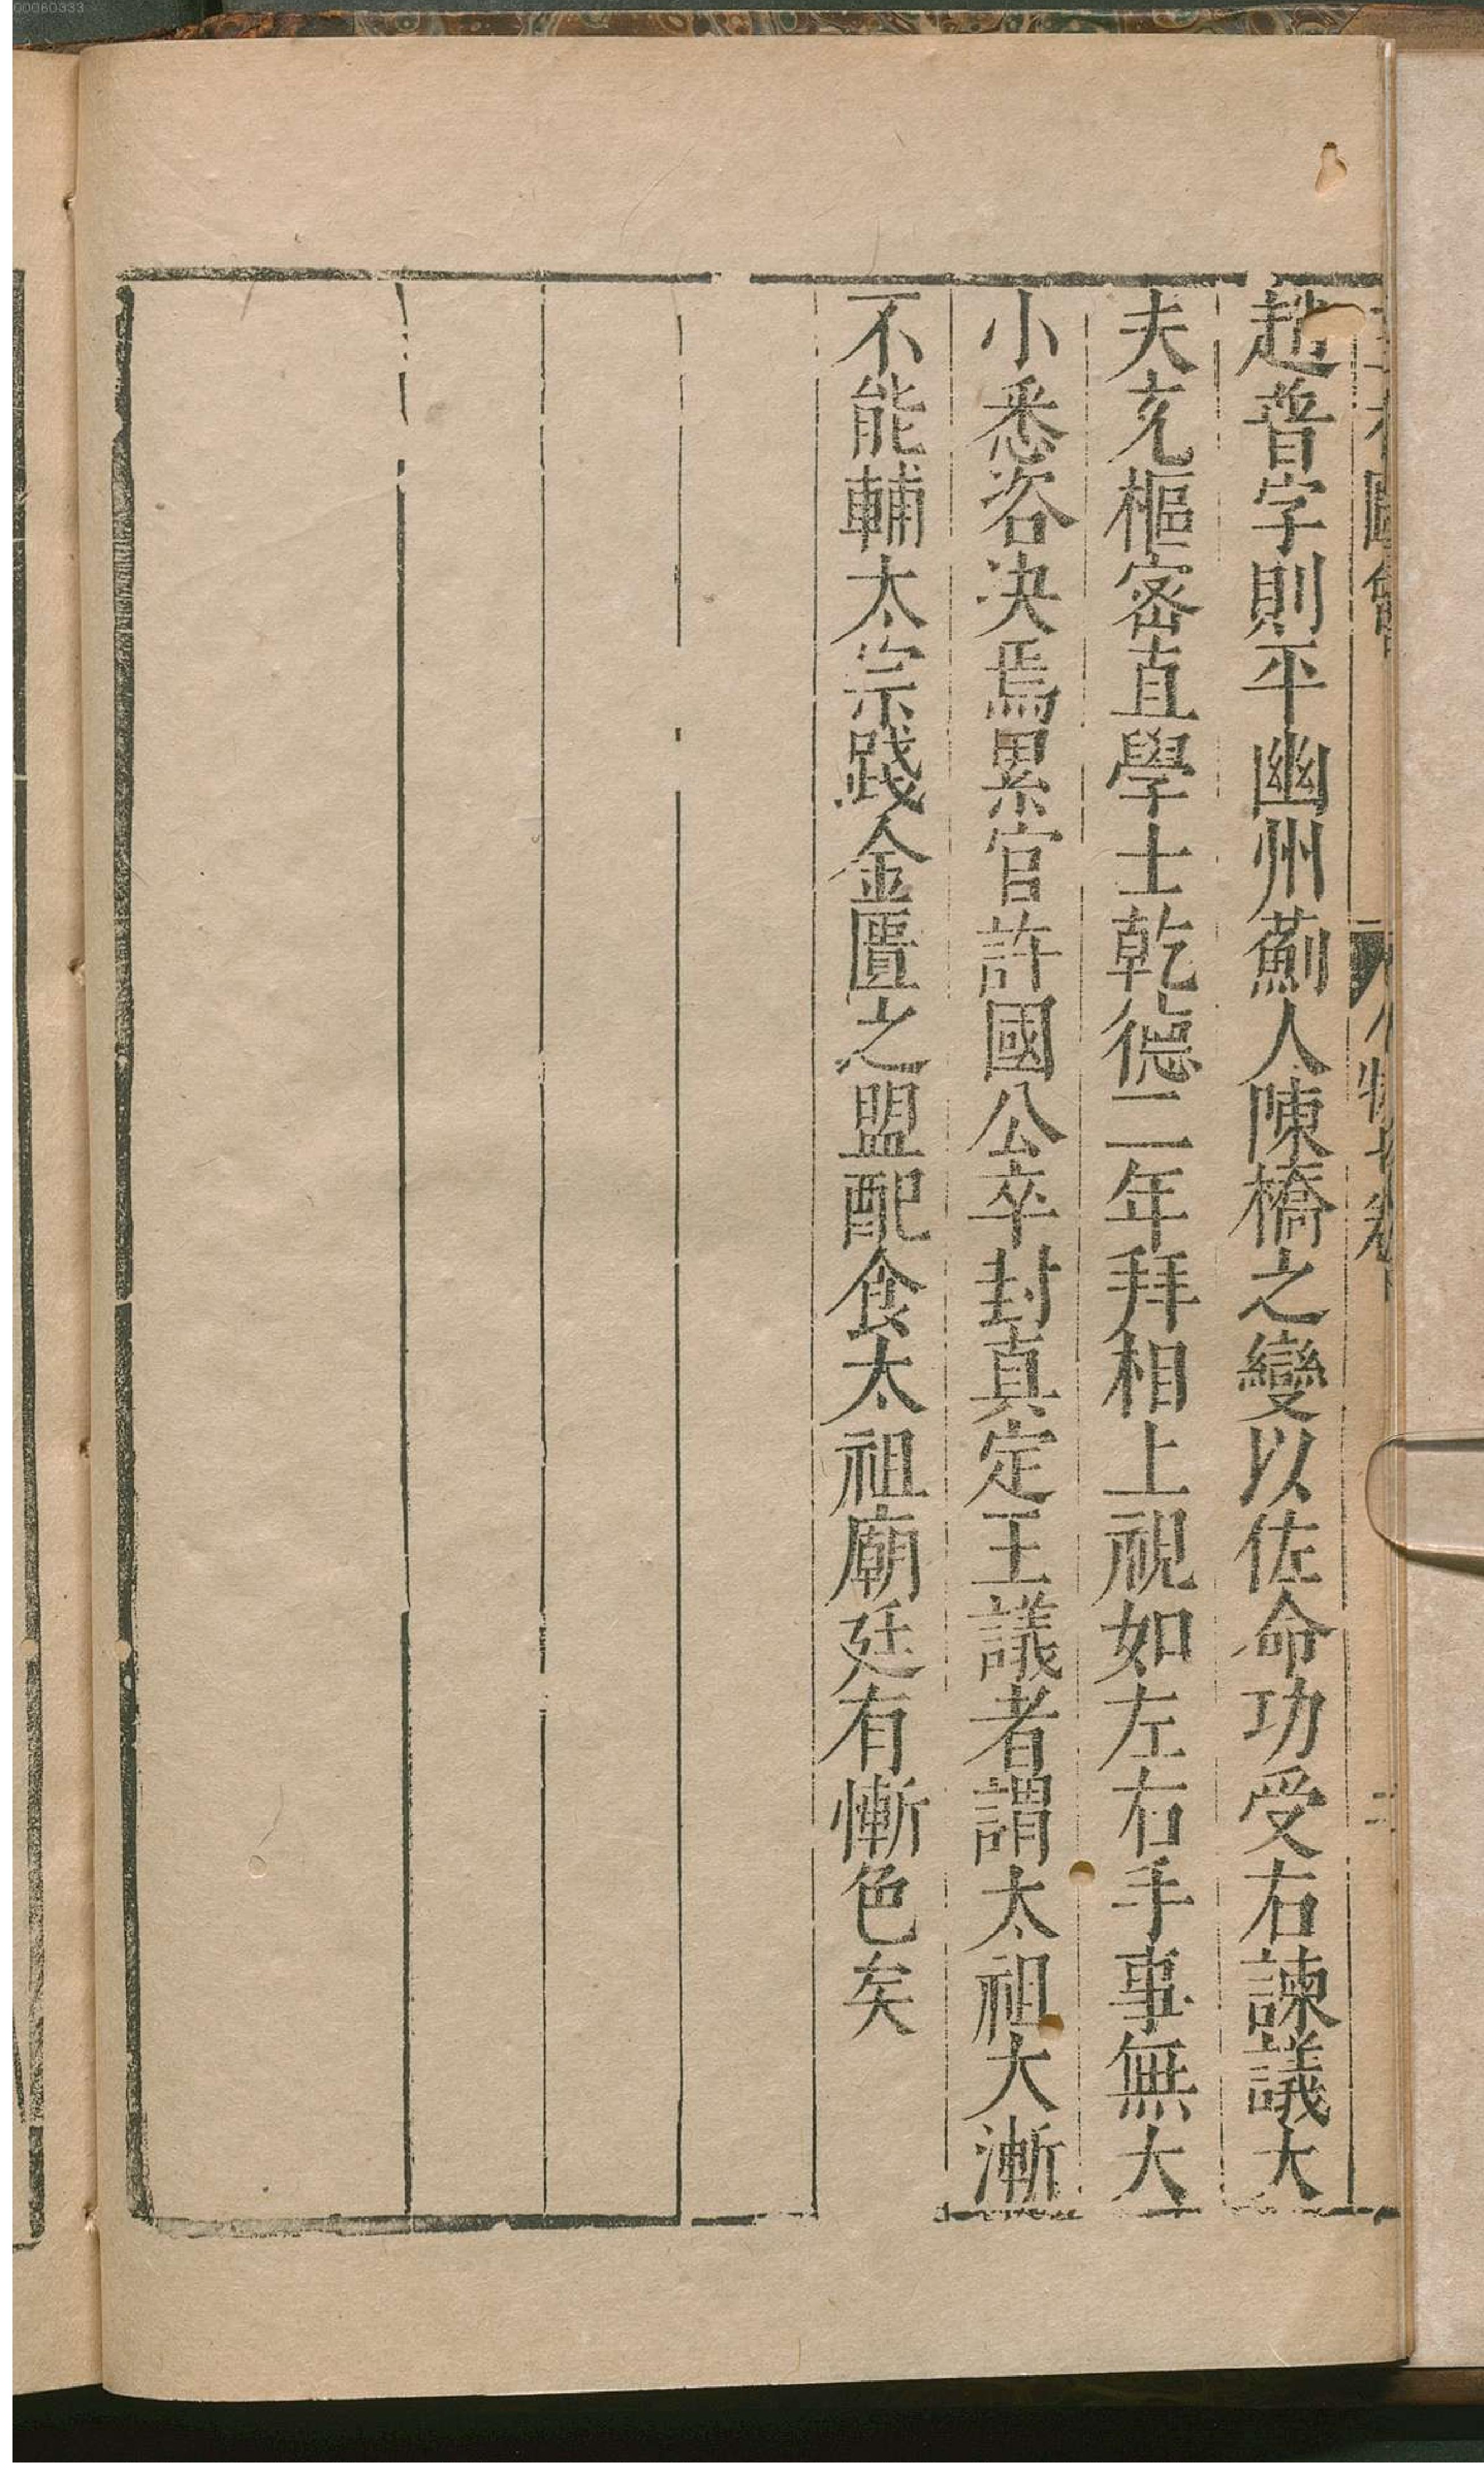 00060333
趙普字則平幽州薊人陳橋之變以佐命功受右諫議大
夫充樞密直學士乾德二年拜相上視如左右手事無大
小悉咨決焉累官許國公卒封真定王議者謂太祖大漸
不能輔太宗踐金匱之盟配食太祖廟廷有慚色矣